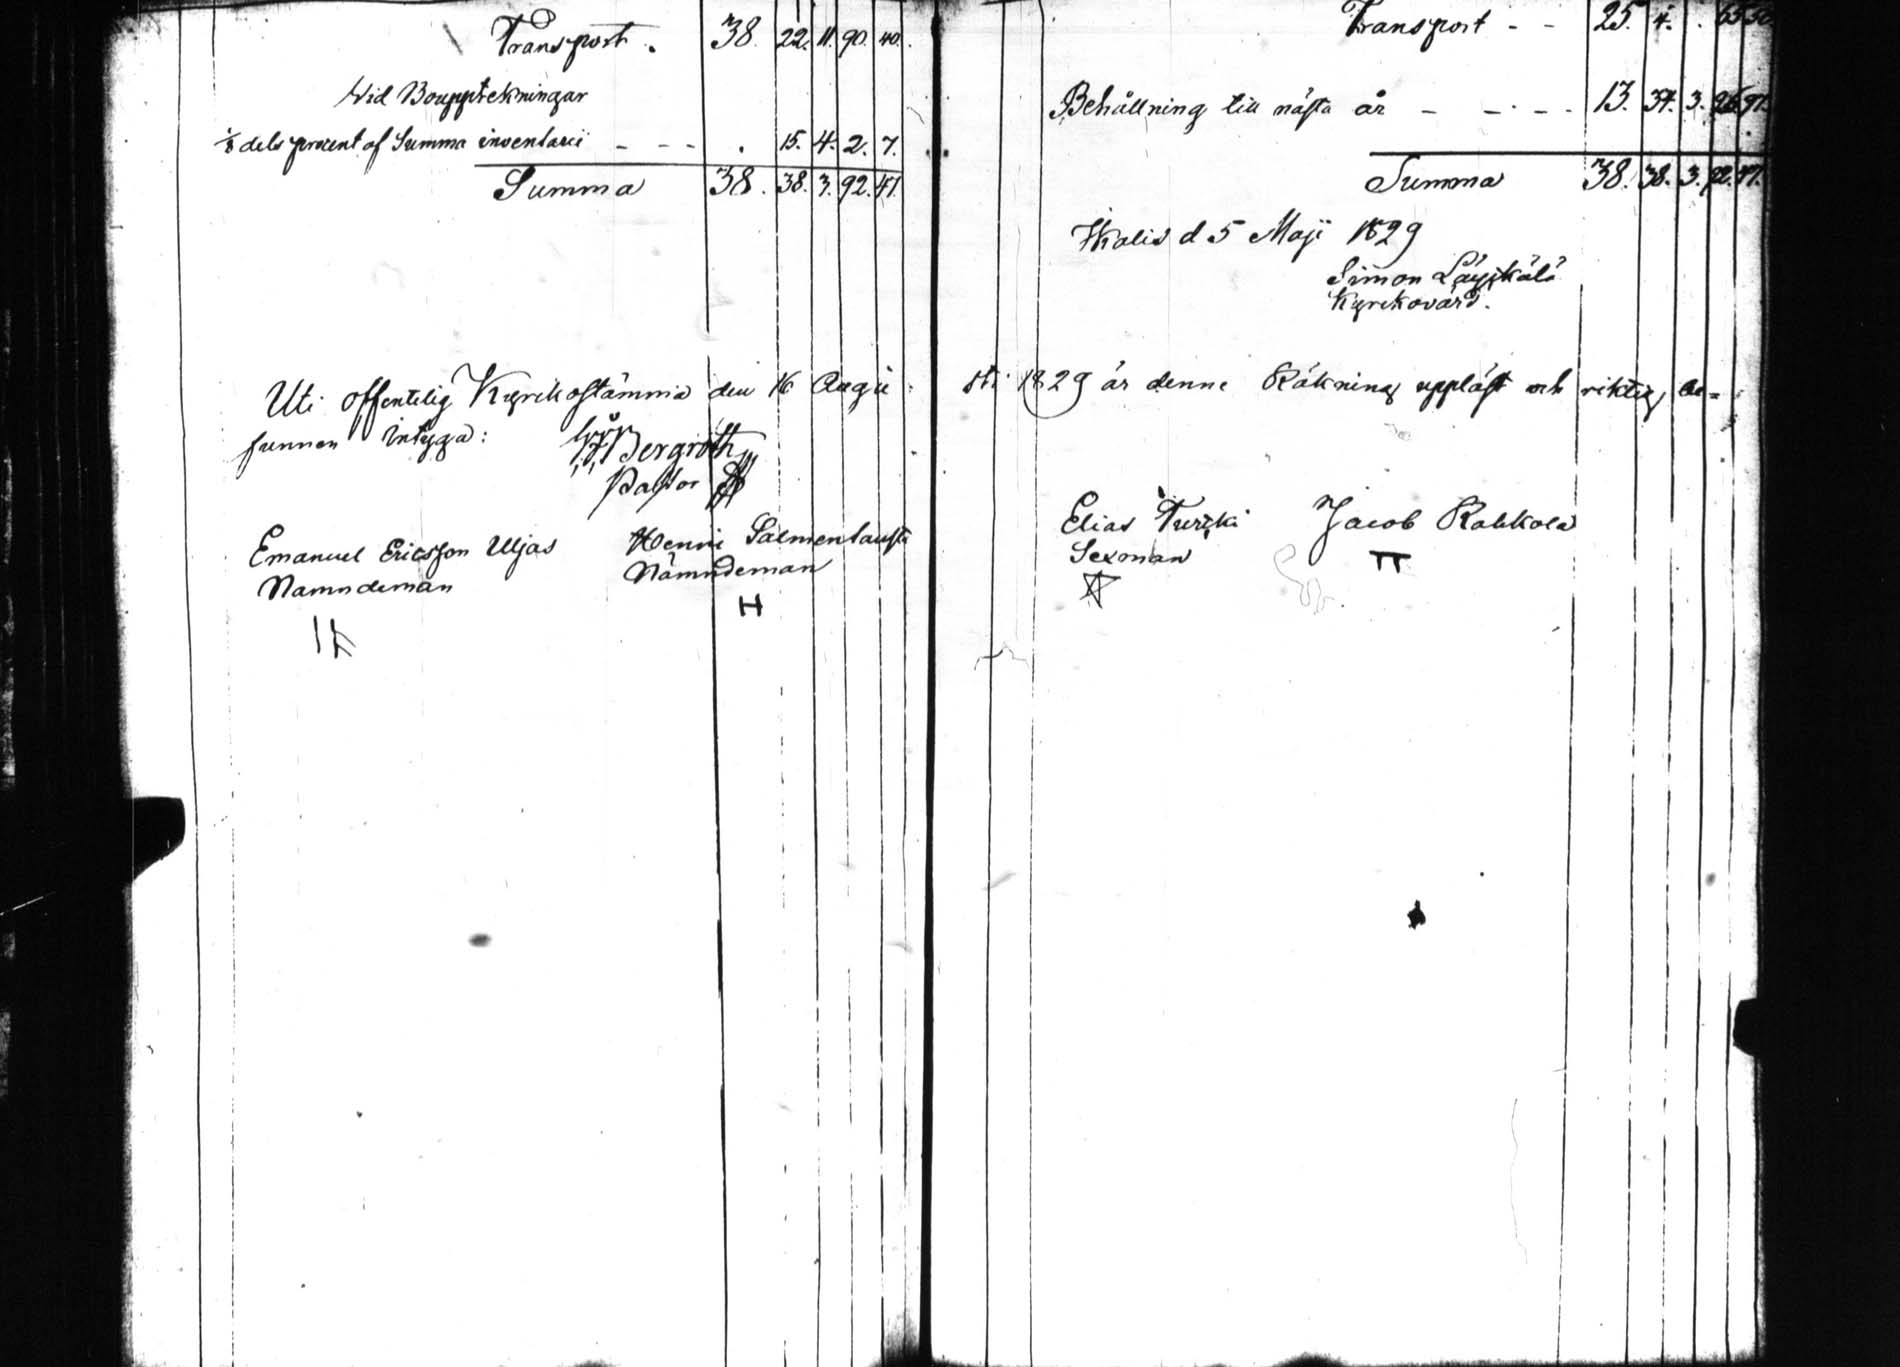 Transport. 38. 22. 11. 90. 40.
Vid Bouppteckningar
1/8 dels procent af Summa inventarii - - - . 15. 4. 2. 7.
Summa 38. 38. 3. 92. 47.
Uti offentelig Kyrckostämma den 16 Augu
funnen intyga:
Bergroth
Pastor
Emanuel Ericsson Uljas
Nämndeman
Henric Salmentausta
Nämndeman
H
Transport - - 25. 4. . 65 50
Behållning till nästa år - - - - 13. 34. 3. 26 97.
Summa 38. 38. 3. 92. 47.
Ikalis d 5 Maji 1829
Simon Läykälä
Kyrckovärd.
sti 1829 är denne Räkning uppläst och riktig be=
Elias Turcki
Sexman
Jacob Rahkola